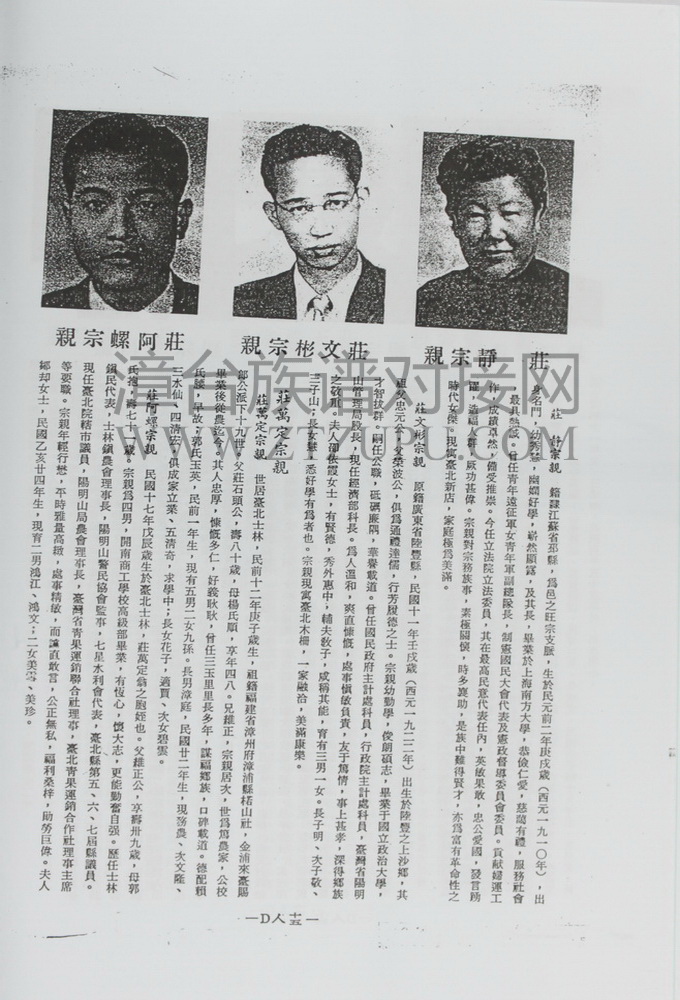 莊靜宗親
莊文彬宗親
莊阿螺宗親
莊靜宗親　籍隸江蘇省邳縣，為邑之旺宗支脈，生於民元前二年庚戌歲（西元一九一〇年），出
身名門，幼秀慧，幽嫻好學，嶄然顯露，及其長，畢業於上海南方大學，恭儉仁愛，慈藹有禮，服務社會
，最具熱誠。曾任青年遠征軍女青年軍副總隊長，制憲國民大會代表及憲政督導委員會委員。貢獻婦運工
作，成績卓然，備受推崇。今任立法院立法委員，其在最高民意代表任內，英敏果敢，忠公愛國，發言踴
躍，造福人群，厥功甚偉。宗親對宗務族事，素極關懷，時多襄助，是族中難得賢才，亦為富有革命性之
時代女傑。現寓臺北新店，家庭極為美滿。
莊文彬宗親　原籍廣東省陸豐縣，民國十一年壬戌歲（西元一九二二年）出生於陸豐之上沙鄉，其
祖父忠元公，父榮波公，俱為通禮達儒，行芳脫德之士。宗親幼勤學，俊朗碩志，畢業于國立政治大學，
才智拔群。嗣任公職，砥礪廉隅，華譽載道。曾任國民政府主計處科員，行政院主計處科員，臺灣省陽明
山管理局股長，現任經濟部科長。為人溫和，爽直慷慨，處事慎敏負責，友于篤情，事上甚孝，深得鄉族
之敬重。夫人霞女士，有賢德，秀外惠中，輔夫敎子，咸稱其能，育有三男一女。長子明、次子敬、
三子山；長女，悉好學有為者也。宗親現寓臺北木柵，一家融洽，美滿康樂。
莊萬定宗親
莊萬定宗親　世居臺北士林，民前十二年庚子歲生，祖籍福建省漳州府漳浦縣社，金浦來臺陽
鄒公派下十九世。父莊石頭公，壽八十歲，母楊氏順，享年四八。兄維正，宗親居次，世為篤農家，公校
畢業後從農迄今。其人忠厚，慷慨多仁，好義耿耿，曾任三玉里里長多年，謀福鄉族，口碑載道。德配賴
氏，早故；郭氏玉英，民前一年生，現有五男二女九孫。長男漳庭，民國廿二年生，現務農、次文隆、
三水仙、四清宏，俱成家立業、五清奇，求學中；長女花子，適賈、次女碧雲。
莊阿螺宗親　民國十七年戊辰歲生於臺北士林，莊萬定翁之胞姪也。父維正公，享壽卅九歲，母郭
氏抱，壽七十一歲。宗親為四男，開南商工學校高級部畢業，有恆心，懷大志，更能勤奮自强。歷任士林
鎮民代表，士林鎮農會理事長，陽明山警民協會監事，七星水利會代表，臺北縣第五、六、七屆縣議員。
現任臺北院轄市議員，陽明山局農會理事長，臺灣省青果運銷聯合社理事，臺北青果運銷合作社理事主席
等要職。宗親年輕有，平時雅量高緻，處事精敏，而議直敢言，公正無私，福利桑梓，助勞巨偉。夫人
鄒却女士，民國乙亥廿四年生，現育二男鴻江、鴻文；二女美雲、美珍。
—D人五—
漳台族谱对接网
WWW.ZTZUPU.COM